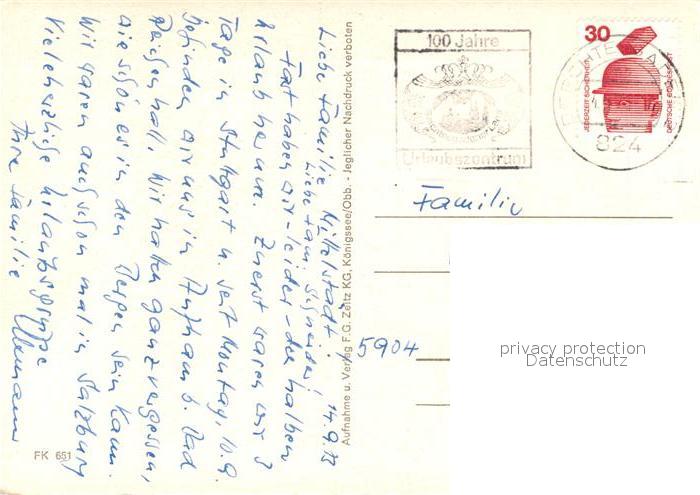 Liebe Familie Mittelstädt! 14.9.73
Liebe Fam. Schneider!
Fast haben wir - leider - den halben
Urlaub herum. Zuerst waren wir 3
Tage in Stuttgart u. seit Montag, 10.9.
befinden wir uns in Aufham b. Bad
Reichenhall. Wir hatten ganz vergessen,
wie schön es in den Bergen sein kann.
Wir waren auch schon mal in Salzburg
Vielherzige Urlaubsgrüße
Ihre Familie
Aufnahme u. Verlag F.G. Zeitz KG, Königssee/Obb. - Jeglicher Nachdruck verboten
FK 651
100 Jahre
Urlaubszentrum
824
30
JEDERZEIT SICHERHEIT
DEUTSCHE BUNDESPOST
Familie
5904
privacy protection
Datenschutz